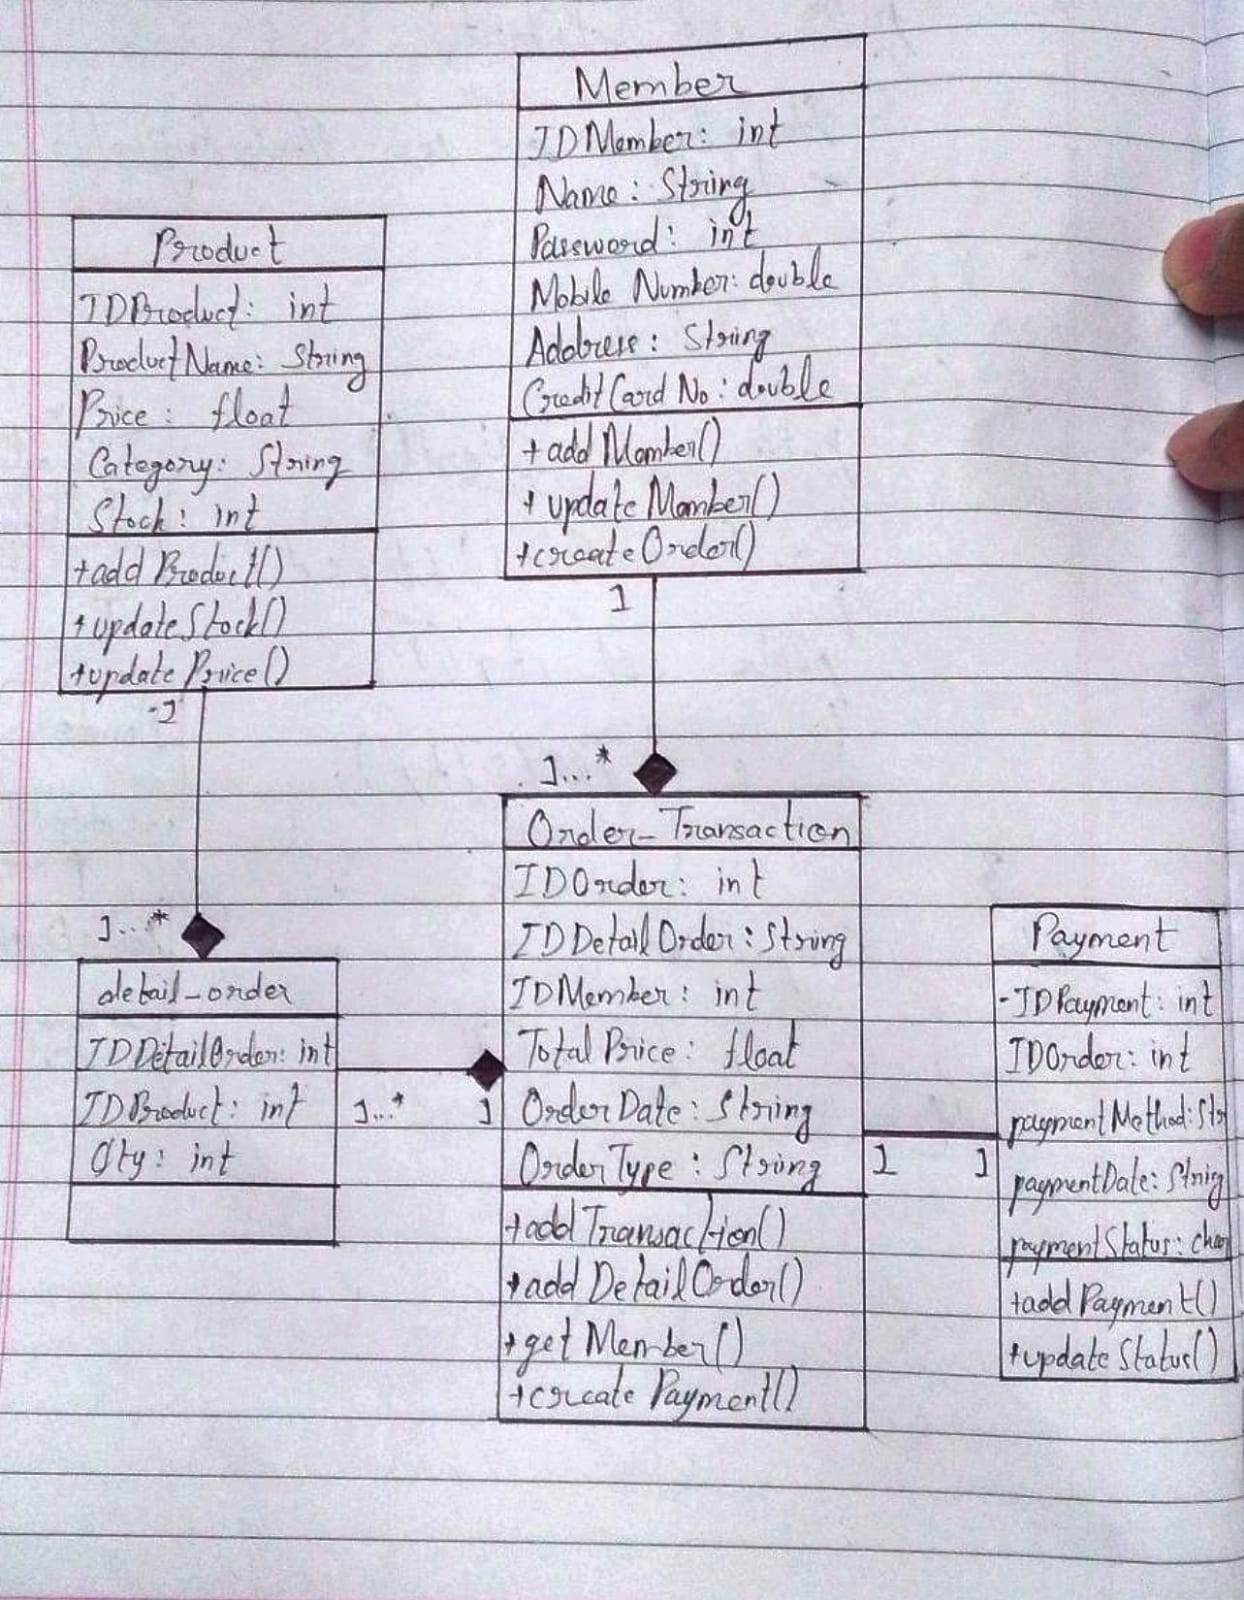 Member
IDMember: int
Name: String
Password: int
Mobile Number: double
Address: String
CreditCard No: double
+ add Member()
+ update Member()
+createOrder()
1
1...*
Product
IDProduct: int
ProductName: String
Price: float
Category: String
Stock: int
+add Product()
+updateStock()
+update Price()
1
1...*
detail_order
IDDetailOrder: int
IDProduct: int
Qty: int
1...*
1
Order_Transaction
IDOrder: int
IDDetailOrder: String
IDMember: int
Total Price: float
OrderDate: String
OrderType: String
+addTransaction()
+add DetailOrder()
+get Member()
+create Payment()
1
1
Payment
-IDPayment: int
IDOrder: int
paymentMethod: Str
paymentDate: String
paymentStatus: char
+addPayment()
+updateStatus()